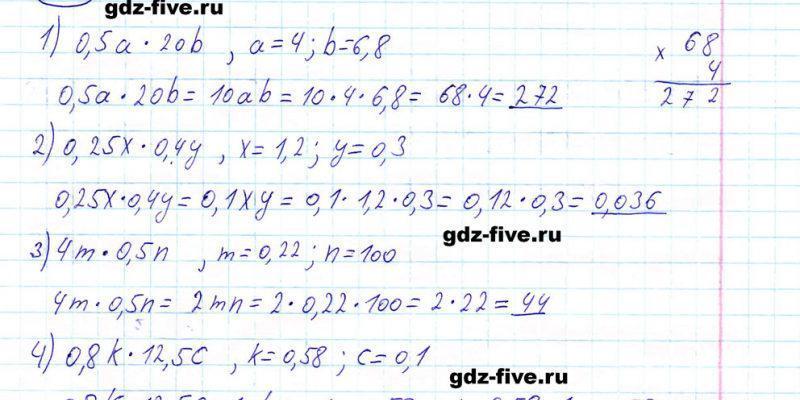 gdz-five.ru
1) 0,5a · 20b , a=4; b=6,8
× 68
4
272
0,5a · 20b = 10ab = 10 · 4 · 6,8 = 68 · 4 = 272
2) 0,25x · 0,4y , x=1,2; y=0,3
0,25x · 0,4y = 0,1xy = 0,1 · 1,2 · 0,3 = 0,12 · 0,3 = 0,036
gdz-five.ru
3) 4m · 0,5n , m=0,22; n=100
4m · 0,5n = 2mn = 2 · 0,22 · 100 = 2 · 22 = 44
4) 0,8k · 12,5c , k=0,58; c=0,1
gdz-five.ru